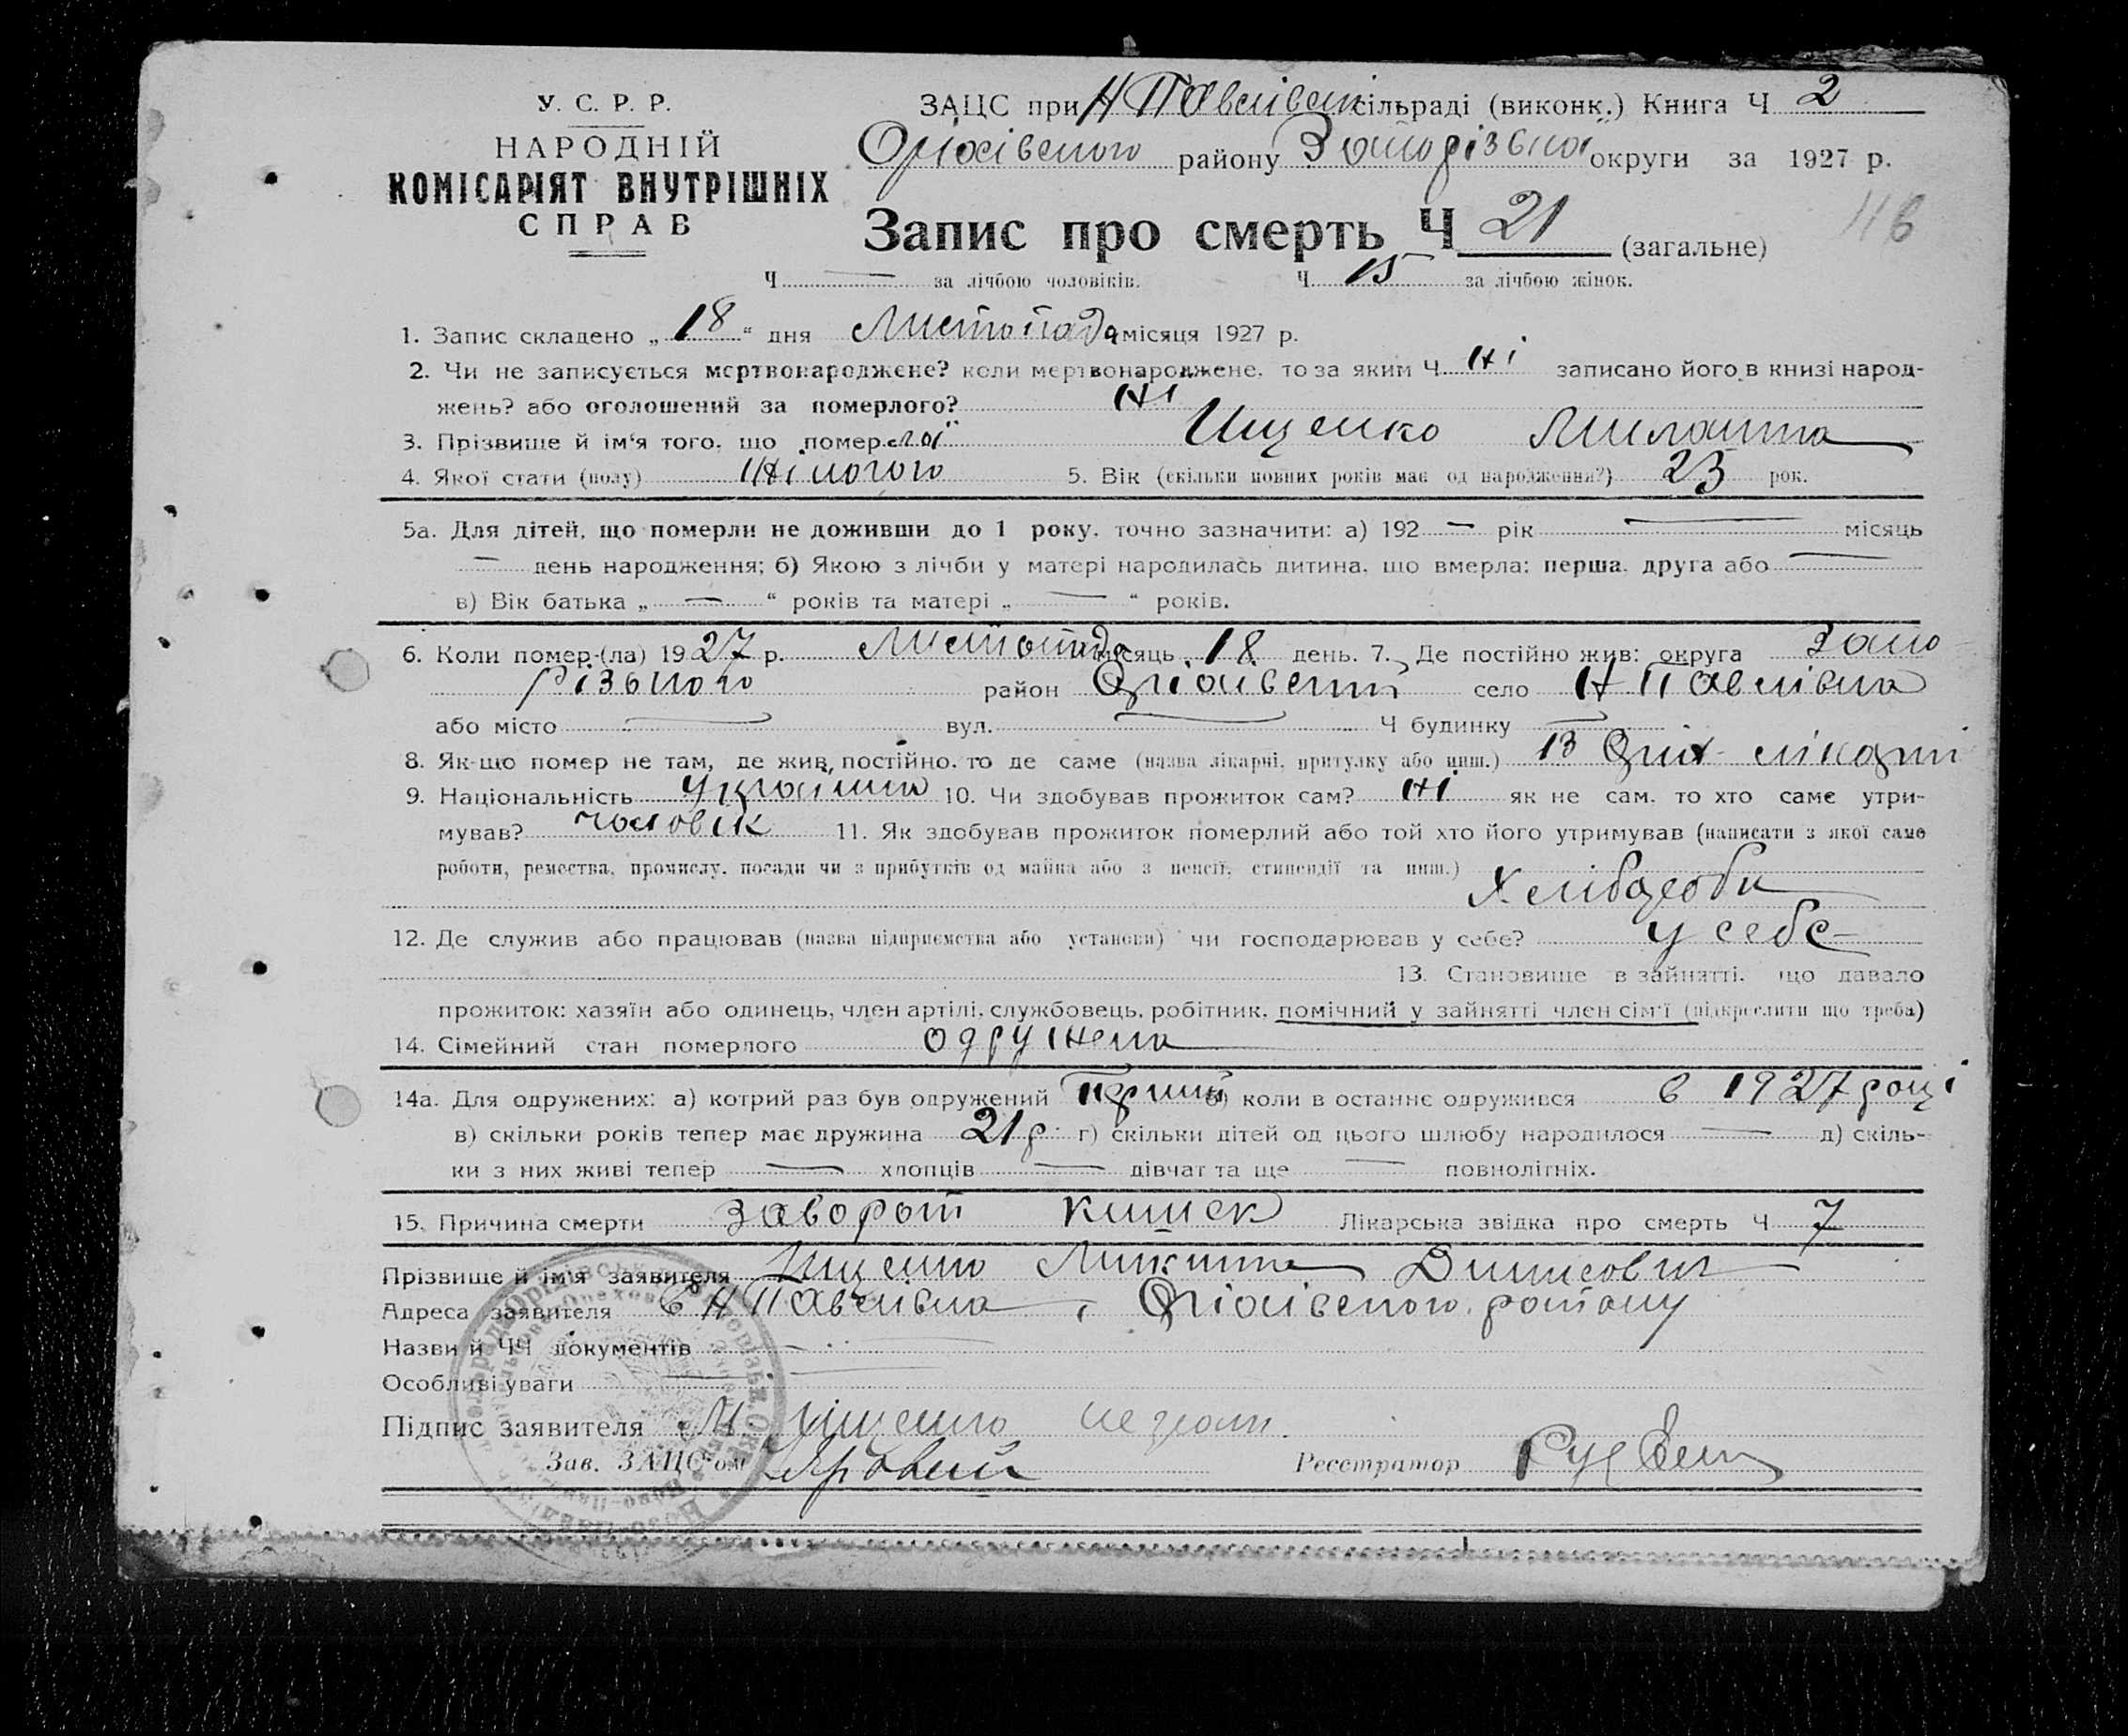 У. С. Р. Р.
НАРОДНІЙ
КОМІСАРІЯТ ВНУТРІШНІХ
СПРАВ
ЗАЦС при Н Павлівск сільраді (виконк.) Книга Ч 2
Оріхівського району Запорізької округи за 1927 р.
Запис про смерть Ч 21 (загальне)
116
Ч — за лічбою чоловіків. Ч 15 за лічбою жінок.
1. Запис складено „ 18 “ дня Листопада місяця 1927 р.
2. Чи не записується мертвонароджене? коли мертвонароджене, то за яким Ч Ні записано його в книзі народ-
жень? або оголошений за померлого? Ні
3. Прізвище й ім'я того, що помер лої Ищенко
4. Якої стати (полу) Жіночого 5. Вік (скільки повних років має од народження?) 23 рок.
5а. Для дітей, що померли не доживши до 1 року, точно зазначити: а) 192 — рік — місяць
— день народження; б) Якою з лічби у матері народилась дитина, що вмерла: перша, друга або —
в) Вік батька „ — “ років та матері „ — “ років.
6. Коли помер-(ла) 1927 р. Листопада місяць 18 день. 7. Де постійно жив: округа Запо-
різького район Оріхівський село Н Павлівка
або місто — вул. — Ч будинку —
8. Як-що помер не там, де жив постійно, то де саме (назва лікарні, притулку або инш.) В Оріх лікарні
9. Національність Українка 10. Чи здобував прожиток сам? Ні як не сам, то хто саме утри-
мував? чоловік 11. Як здобував прожиток померлий або той хто його утримував (написати з якої саме
роботи, ремества, промислу, посади чи з прибутків од майна або з пенсії, стипендії та инш.)
Хлібороби
12. Де служив або працював (назва підприємства або установи) чи господарював у себе? у себе
13. Становище в зайнятті, що давало
прожиток: хазяїн або одинець, член артілі, службовець, робітник, помічний у зайнятті член сім'ї (підкреслити що треба)
14. Сімейний стан померлого одружена
14а. Для одружених: а) котрий раз був одружений перший б) коли в останнє одружився в 1927 році
в) скільки років тепер має дружина 21 р. г) скільки дітей од цього шлюбу народилося — д) скіль-
ки з них живі тепер — хлопців — дівчат та ще — повнолітніх.
15. Причина смерти заворот кишек Лікарська звідка про смерть Ч 7
Прізвище й ім'я заявителя Ищенко Микита Динисович
Адреса заявителя с Н Павлівка, Оріхівського району
Назви й ЧЧ документів —
Особливі уваги —
Підпис заявителя М. Іщенко неграм.
Зав. ЗАЦС'ом Яровий Реєстратор